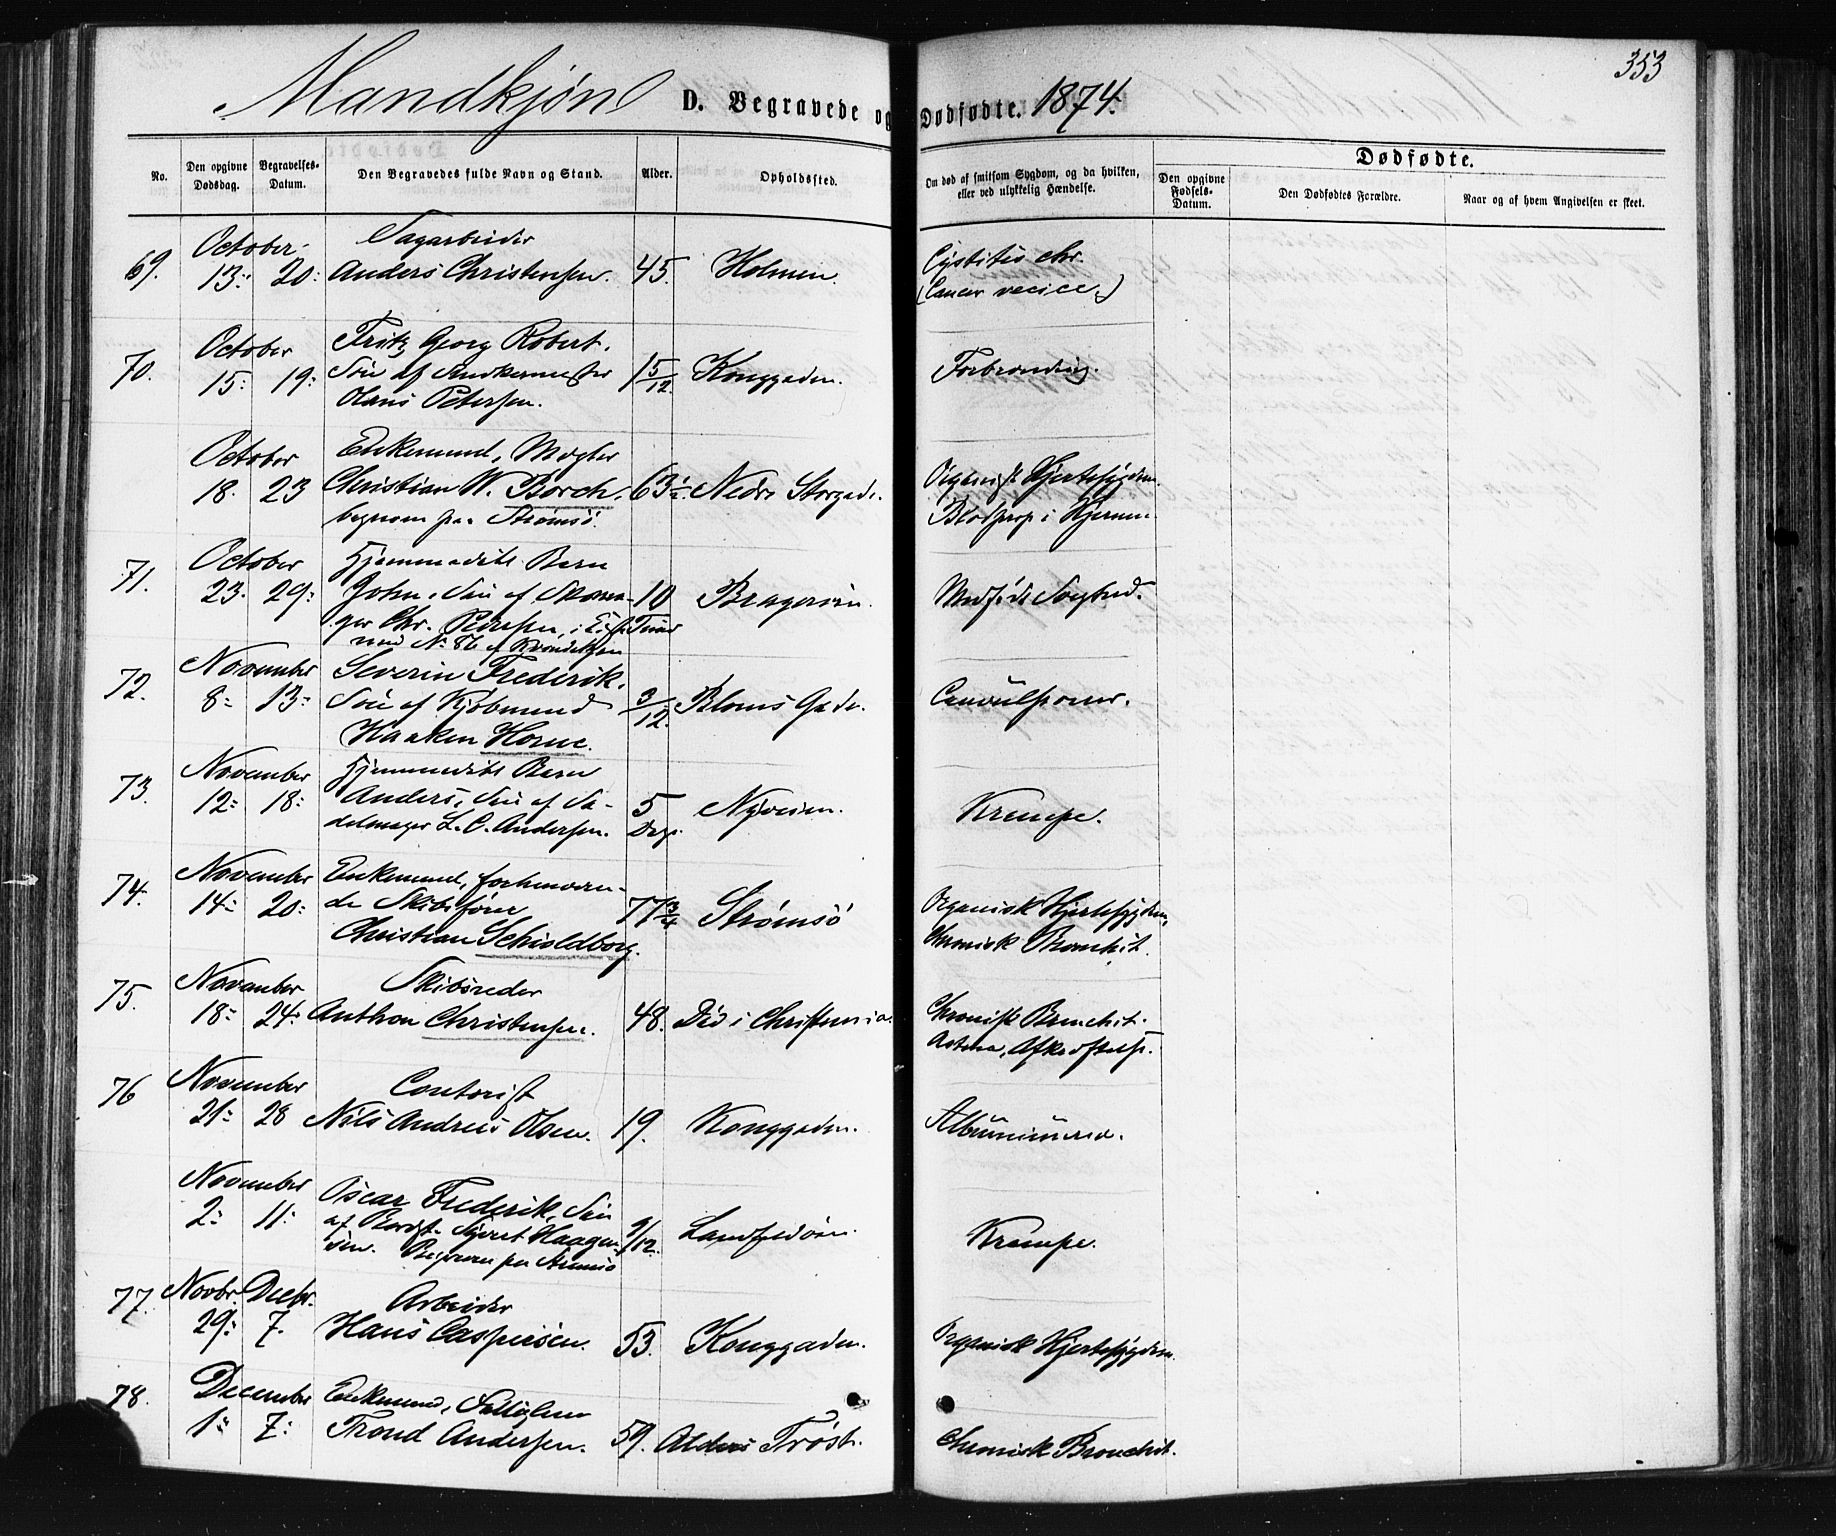 353
Mandkjøn D. Begravede og Dødfødte. 1874.
No. Den opgivne Dødsdag. Begravelses-Datum. Den Begravedes fulde Navn og Stand. Alder. Opholdssted. Om død af smitsom Sygdom, og da hvilken, eller ved ulykkelig Hændelse. Dødfødte.
Den opgivne Fødsels-Datum. Den Dødfødtes Forældre. Naar og af hvem Angivelsen er skeet.
October Sagarbeider
69. 13: 20: Anders Christensen. 45. Holmen. Cystitis chr.
(Cancer vecice.)
October Fritz Georg Robert.
70. 15: 19: Søn af Snekkermester 15/12 Konggaden. Forbrænding.
Hans Petersen.
October Enkemand, Mægler
18. 23 Christian W. Borch. 63½ Nedre Storgade. Organisk Hjertesygdom.
begraven paa Strømsø. Blodprop i Hjernen.
71. October Hjemmedøbt Barn
23. 29: John, Søn af Skoma- 10 Bragerøen. Medfødt Svaghed.
ger Chr. Timer
med No. 86 af Kvindekjøn
72. November Severin Frederik.
8: 13: Søn af Kjøbmand 3/12. Bloms Gade. Convulsioner.
Haaken Horne.
73. November Hjemmedøbt Barn
12: 18: Anders, Søn af Sa- 5 Nyveien. Krampe.
delmager L. C. Andersen. Dage.
74. November Enkemand, forhenværen-
14: 20: de Skibsfører 77¾ Strømsø Organisk Hjertesygdom,
Christian Schioldborg. Chronisk Bronchit.
75. November Skibsreder
18: 24: Anthon Christensen. 48. Død i Christiania. Chronisk Bronchit.
Astma,
76 November Contorist
21: 28 Nils Andreas Olsen. 19. Konggaden. Albuminuria.
November Oscar Frederik, Søn
2: 11: af Sivert Haagen- 9/12. Landfaldøen. Krampe.
sen. Begraven paa Strømsø
77. Novbr. Decbr. Arbeider
29: 7. Hans Caspersen. 53. Konggaden. Organisk Hjertesygdom.
78. December Enkemand,
1: 7: Trond Andersen. 59. Alders Trøst. Chronisk Bronchit.